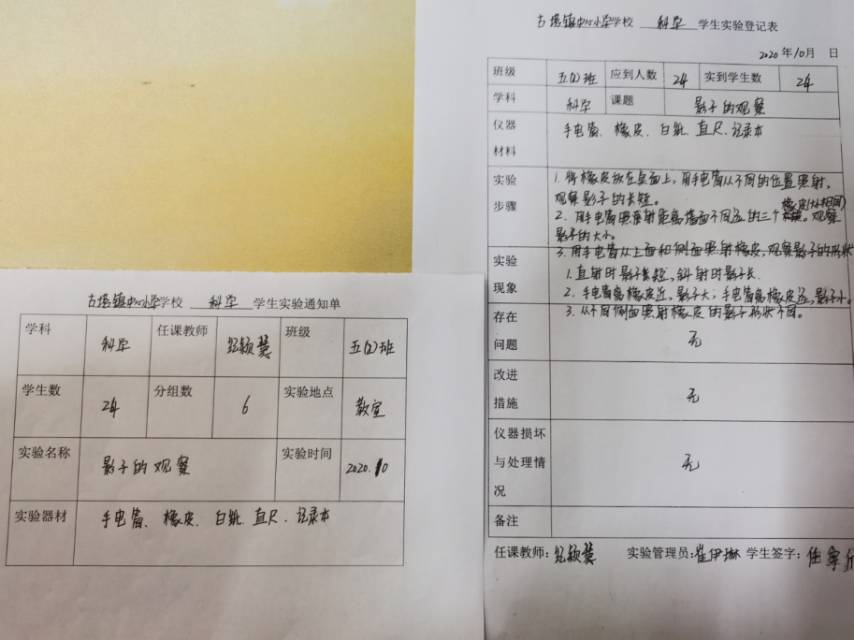 古塔镇中心小学学校 科学 学生实验通知单
学科 科学 任课教师 班级 五(2)班
学生数 24 分组数 6 实验地点 教室
实验名称 影子的观察 实验时间 2020.10
实验器材 手电筒、橡皮、白纸、直尺、记录本
古塔镇中心小学学校 科学 学生实验登记表
2020年10月 日
班级 五(2)班 应到人数 24 实到学生数 24
学科 科学 课题 影子的观察
仪器 手电筒、橡皮、白纸、直尺、记录本
材料
实验 1. 将橡皮放在桌面上,用手电筒从不同的位置照射,
观察影子的长短。
橡皮(大小相同)
步骤 2. 用手电筒照射距离墙面不同远的三个 。观察
影子的大小。
3. 用手电筒从上面和侧面照射橡皮,观察影子的形状
实验 1. 直射时影子短,斜射时影子长.
现象 2. 手电筒离橡皮近,影子大;手电筒离橡皮远,影子小。
3. 从不同侧面照射橡皮的影子形状不同。
存在
问题 无
改进
措施 无
仪器损坏
与处理情 无
况
备注
任课教师: 实验管理员:崔伊琳 学生签字: